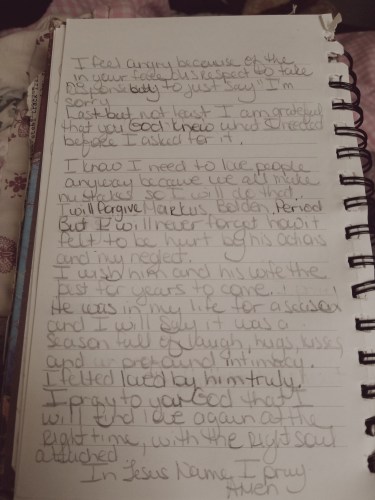 I feel angry because of the
in your face disrespect to take
responsibility to just say "I'm
sorry
Last but not least I am grateful
that you God knew what I needed
before I asked for it.
I know I need to love people
anyway because we all make
mistakes so I will do that.
I will forgive Markus, Belden, Period
But I will never forget how it
felt to be hurt by his actions
and my neglect.
I wish him and his wife the
best for years to come.
He was in my life for a season
and I will say it was a
season full of laugh, hugs, kisses,
and profound intimacy.
I felted loved by him truly.
I pray to you God that I
will find love again at the
right time, with the right soul
attached.
In Jesus Name I pray
Amen